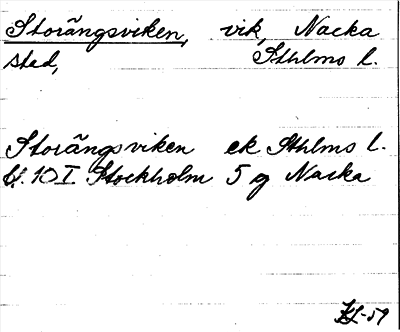 Storängsviken, vik, Nacka
stad, Sthlms l.
Storängsviken ek Sthlms l.
bl. 10 I Stockholm 5 g Nacka